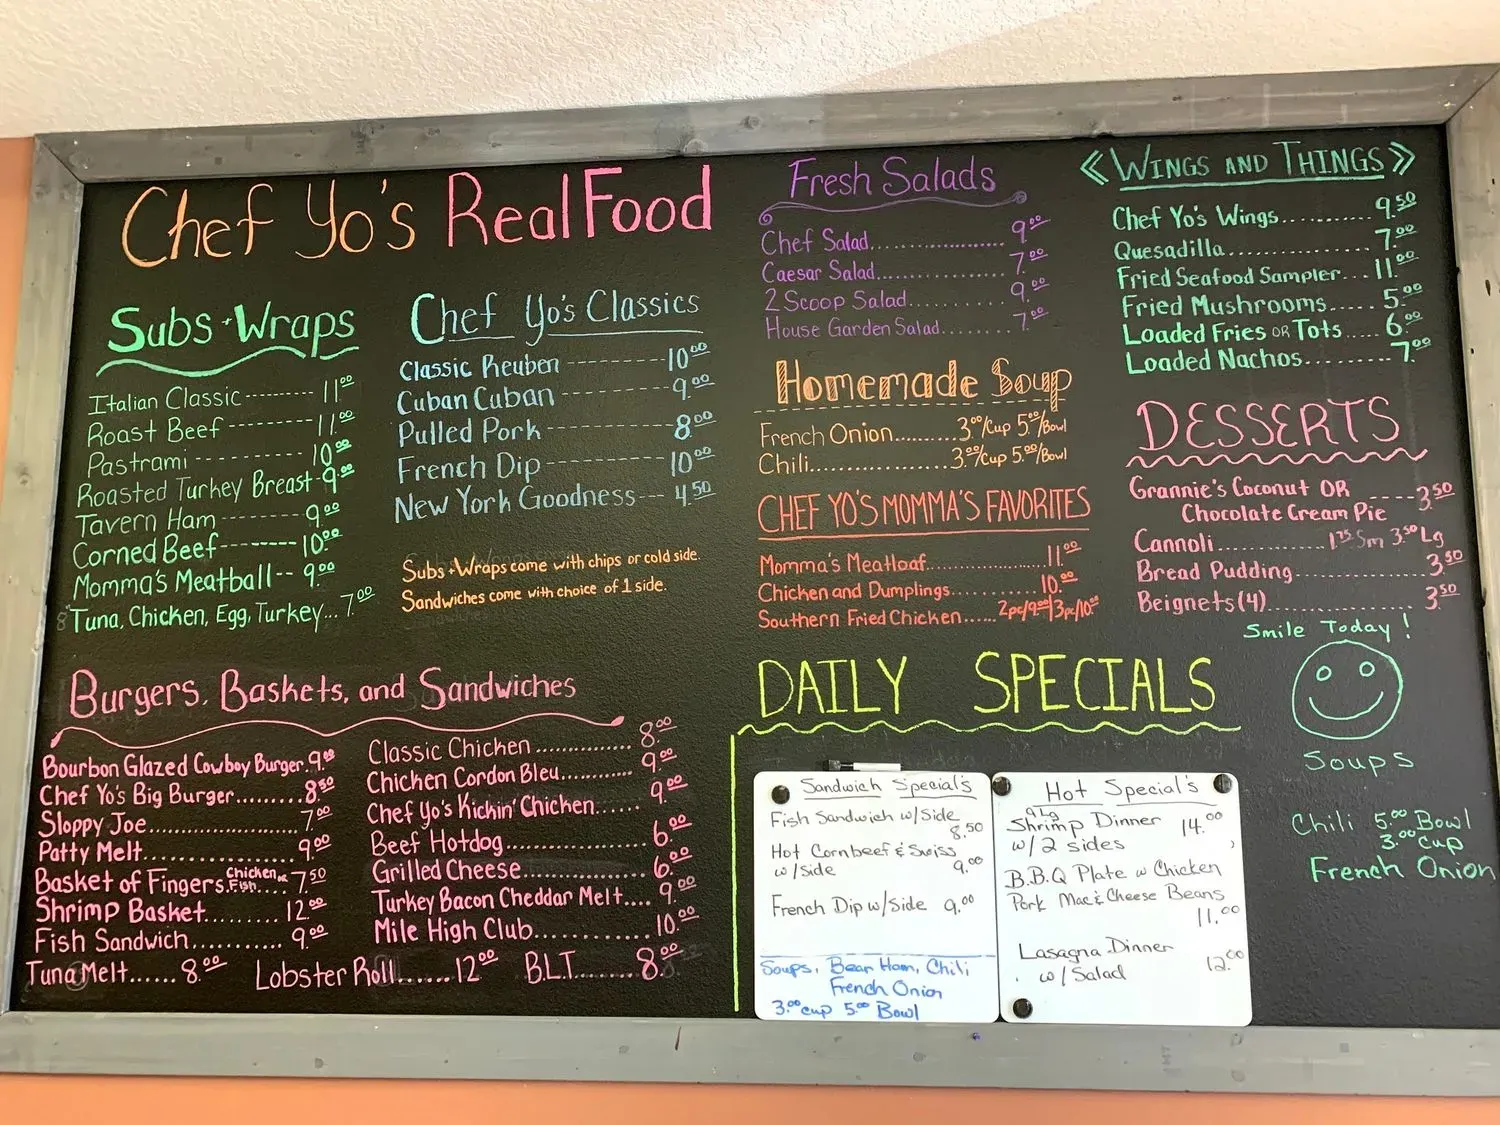 Chef Yo's Real Food
Subs + Wraps
Italian Classic --------- 11.00
Roast Beef --------- 11.00
Pastrami ----------- 10.00
Roasted Turkey Breast - 9.00
Tavern Ham -------- 9.00
Corned Beef -------- 10.00
Momma's Meatball -- 9.00
Tuna, Chicken, Egg, Turkey... 7.00
Chef Yo's Classics
Classic Reuben ---------- 10.00
Cuban Cuban ------------ 9.00
Pulled Pork ------------- 8.00
French Dip ------------ 10.00
New York Goodness --- 4.50
Subs + Wraps come with chips or cold side.
Sandwiches come with choice of 1 side.
Burgers, Baskets, and Sandwiches
Bourbon Glazed Cowboy Burger. 9.00
Chef Yo's Big Burger......... 8.50
Sloppy Joe...................... 7.00
Patty Melt..................... 9.00
Basket of Fingers Chicken or Fish.... 7.50
Shrimp Basket.......... 12.00
Fish Sandwich........... 9.00
Tuna Melt...... 8.00
Classic Chicken .............. 8.00
Chicken Cordon Bleu.......... 9.00
Chef Yo's Kickin' Chicken...... 9.00
Beef Hotdog.................. 6.00
Grilled Cheese................ 6.00
Turkey Bacon Cheddar Melt.... 9.00
Mile High Club............. 10.00
Lobster Roll....... 12.00
B.L.T........ 8.00
Fresh Salads
Chef Salad..................... 9.00
Caesar Salad................ 7.00
2 Scoop Salad............ 9.00
House Garden Salad......... 7.00
Homemade Soup
French Onion......... 3.00/Cup 5.00/Bowl
Chili..................... 3.00/Cup 5.00/Bowl
CHEF YO'S MOMMA'S FAVORITES
Momma's Meatloaf................. 11.00
Chicken and Dumplings........... 10.00
Southern Fried Chicken...... 2pc/9.00 | 3pc/10.00
« WINGS AND THINGS »
Chef Yo's Wings.............. 9.50
Quesadilla.................... 7.00
Fried Seafood Sampler... 11.00
Fried Mushrooms...... 5.00
Loaded Fries OR Tots.... 6.00
Loaded Nachos........... 7.00
DESSERTS
Grannie's Coconut OR ---- 3.50
Chocolate Cream Pie
Cannoli............... 1.75 Sm 3.50 Lg
Bread Pudding.................. 3.50
Beignets (4).................... 3.50
Smile Today!
Soups
Chili 5.00 Bowl
3.00 Cup
French Onion
DAILY SPECIALS
Sandwich Special's
Fish Sandwich w/Side
8.50
Hot Cornbeef & Swiss
w/side 9.00
French Dip w/Side 9.00
Soups, Bean Ham, Chili
French Onion
3.00 cup 5.00 Bowl
Hot Special's
9 Lg
Shrimp Dinner 14.00
w/ 2 sides
B.B.Q Plate w Chicken
Pork Mac & Cheese Beans
11.00
Lasagna Dinner
w/Salad 12.00